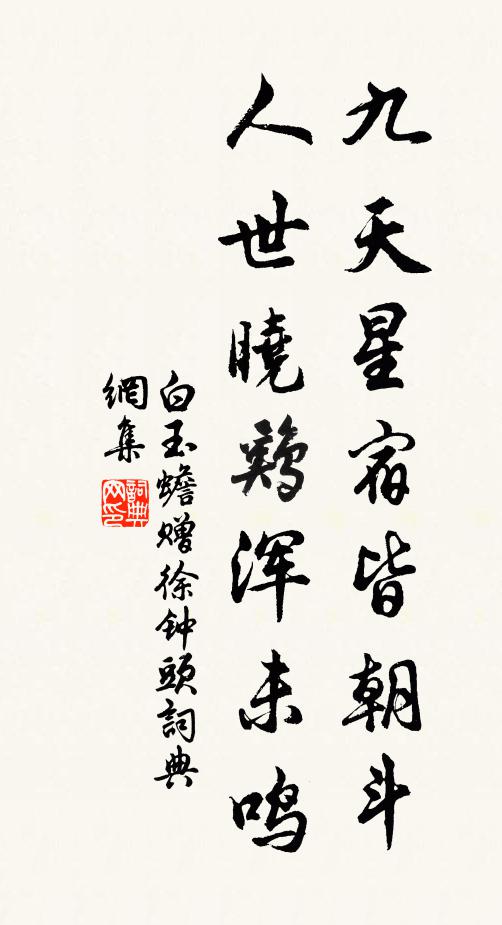 九天星宿皆朝斗
人世曉鷄浑未鸣
白玉蟾赠徐钟頭詞典
網集
詞典
网印